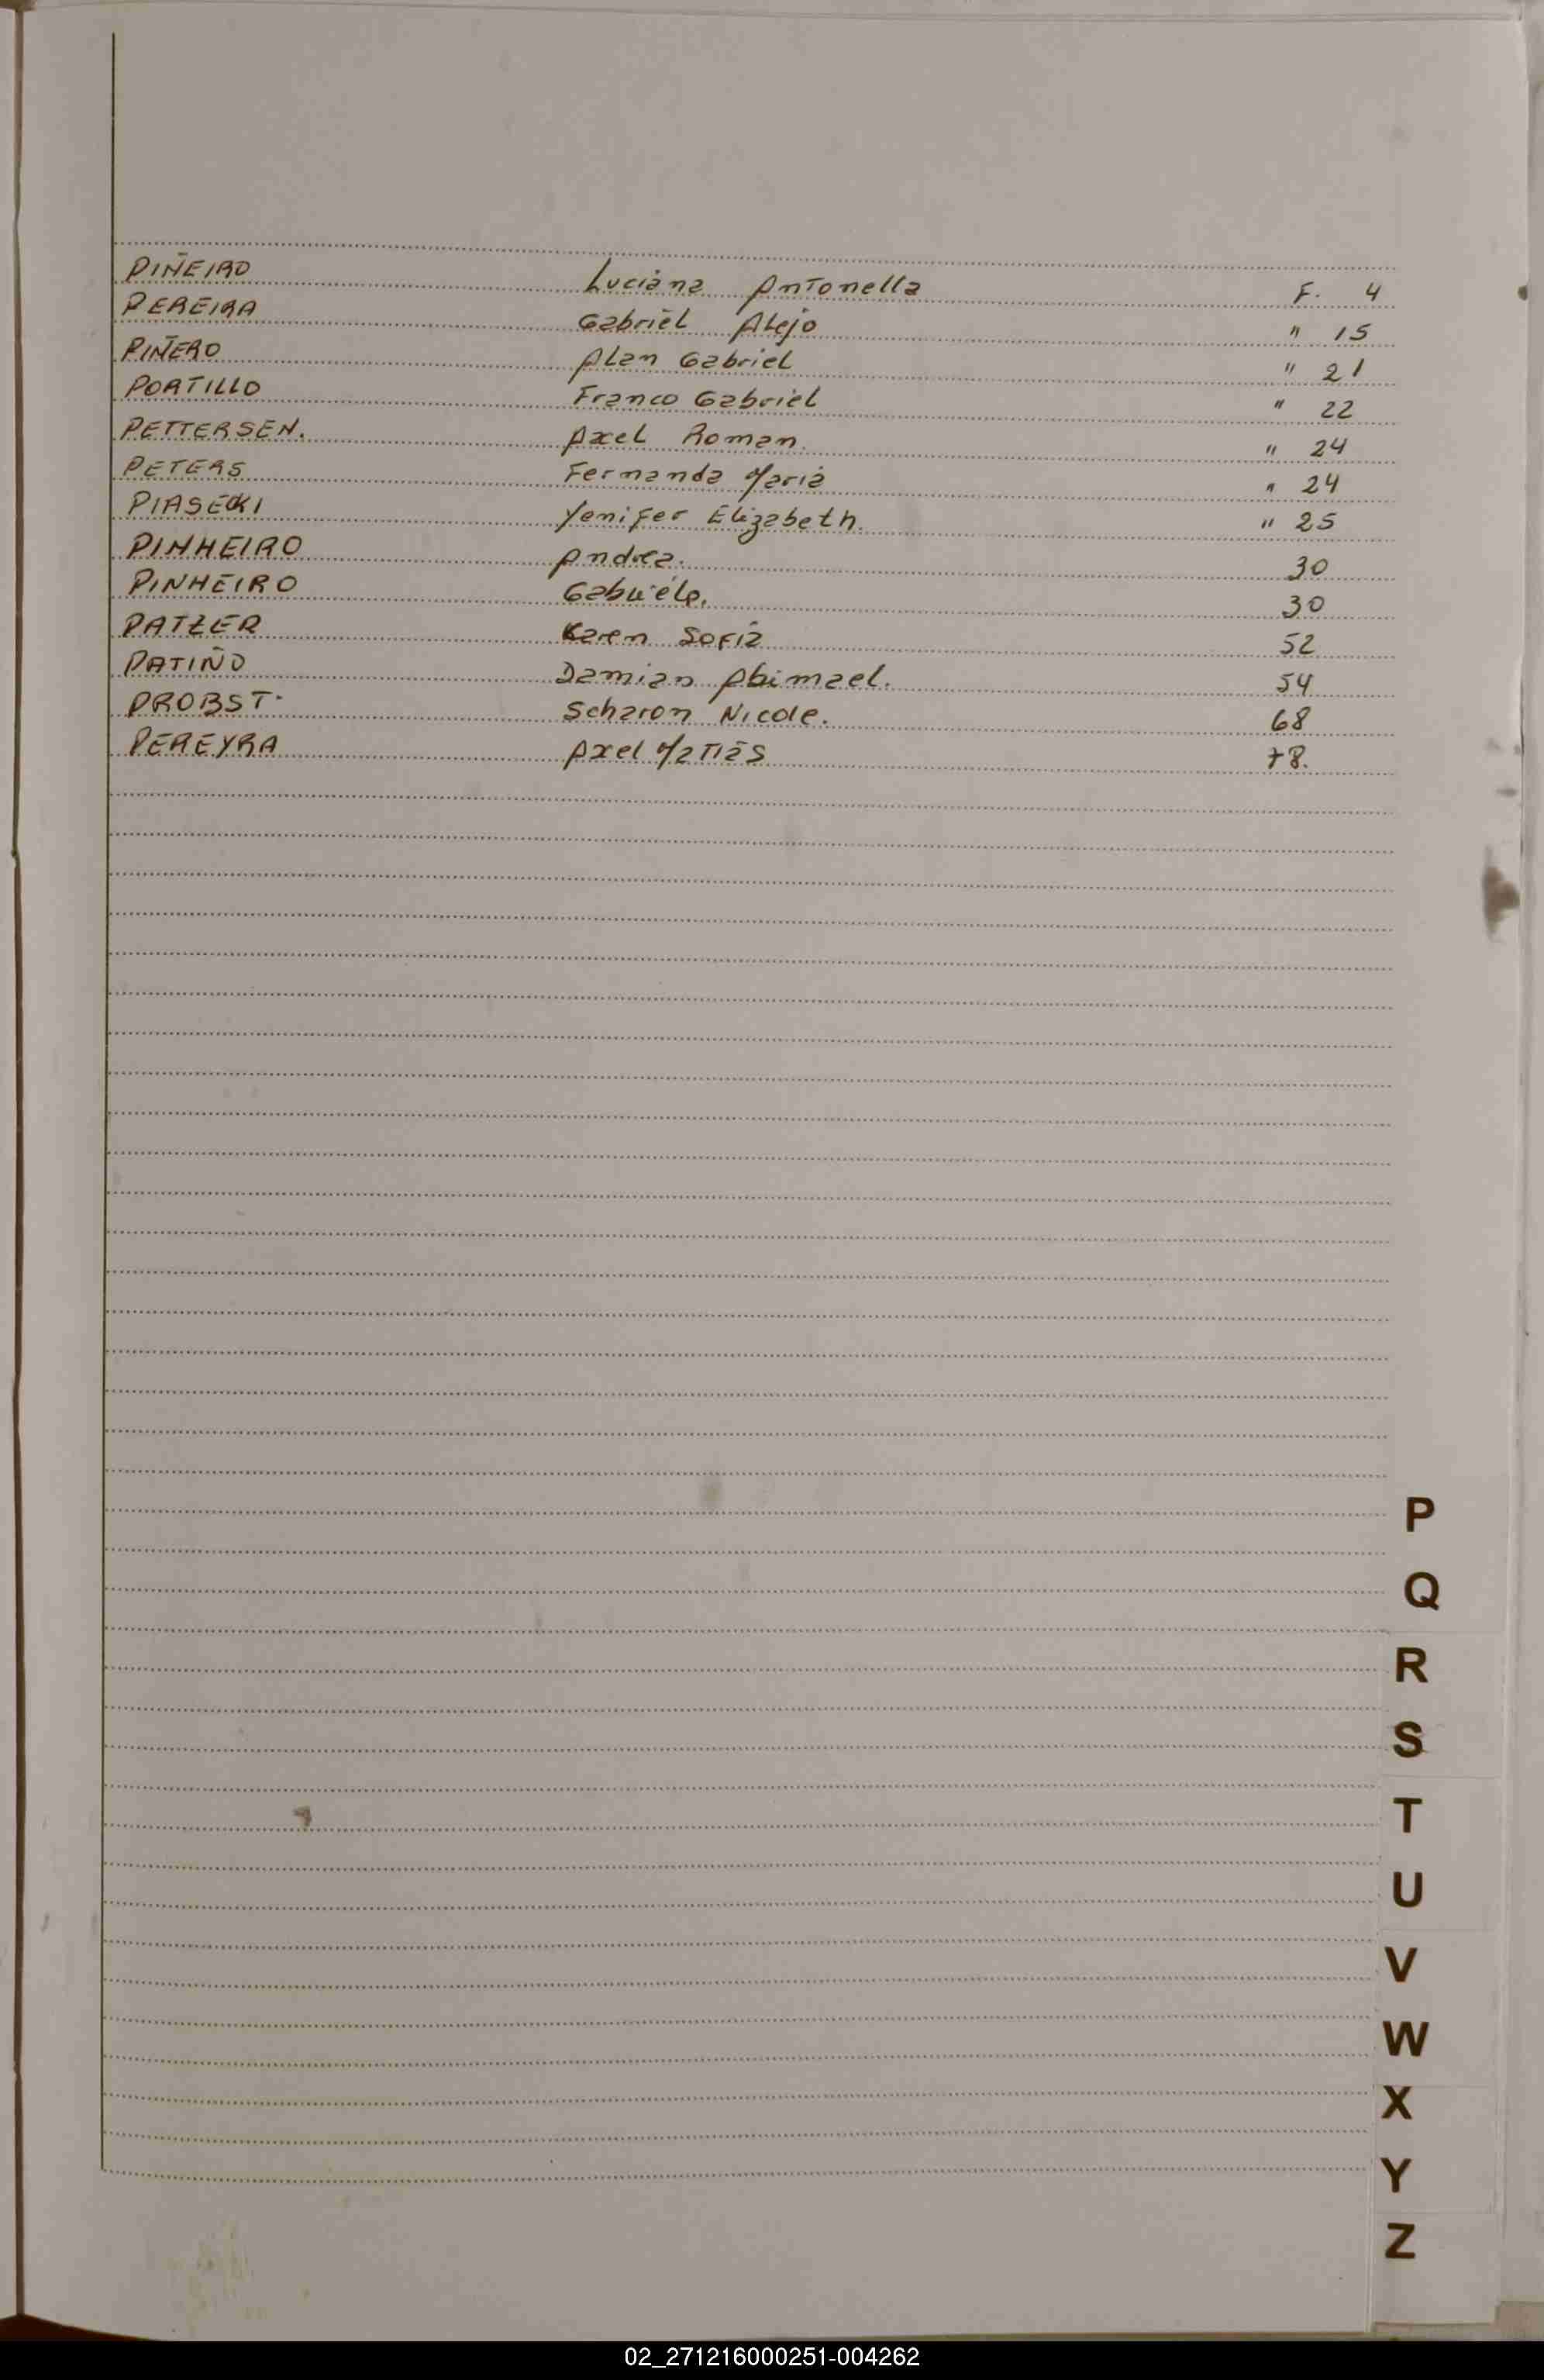 PIÑEIRO Luciana Antonella F. 4
PEREIRA Gabriel Alejo " 15
PIÑERO Alan Gabriel " 21
PORTILLO Franco Gabriel " 22
PETTERSEN. Axel Roman. " 24
PETERS Fernanda Maria " 24
PIASECKI Yenifer Elizabeth. " 25
PINHEIRO Andrea. 30
PINHEIRO Gabriela. 30
PATZER Karen Sofia 52
PATIÑO Damian Abimael. 54
PROBST. Scharon Nicole. 68
PEREYRA Axel Matias 78.
P
Q
R
S
T
U
V
W
X
Y
Z
02_271216000251-004262